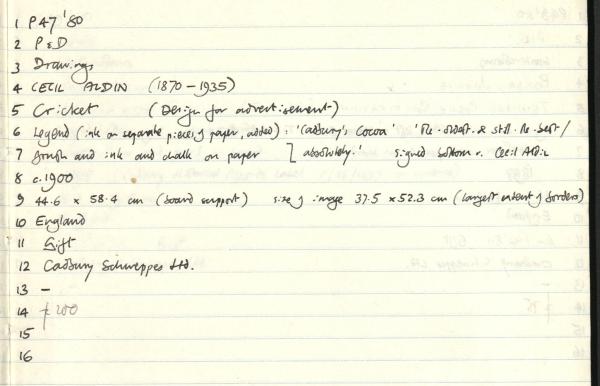 1 P47 '80
2 P&D
3 Drawings
4 CECIL ALDIN (1870-1935)
5 Cricket (Design for advertisement)
6 Legend (ink on separate pieces of paper, added): 'Cadbury's Cocoa' 'The oldest & still the best/
7 Brush and ink and chalk on paper ] absolutely.' signed bottom r. Cecil Aldin
8 c.1900
9 44.6 x 58.4 cm (board support) size of image 37.5 x 52.3 cm (largest extent of borders)
10 England
11 Gift
12 Cadbury Schweppes Ltd.
13 -
14 £200
15
16